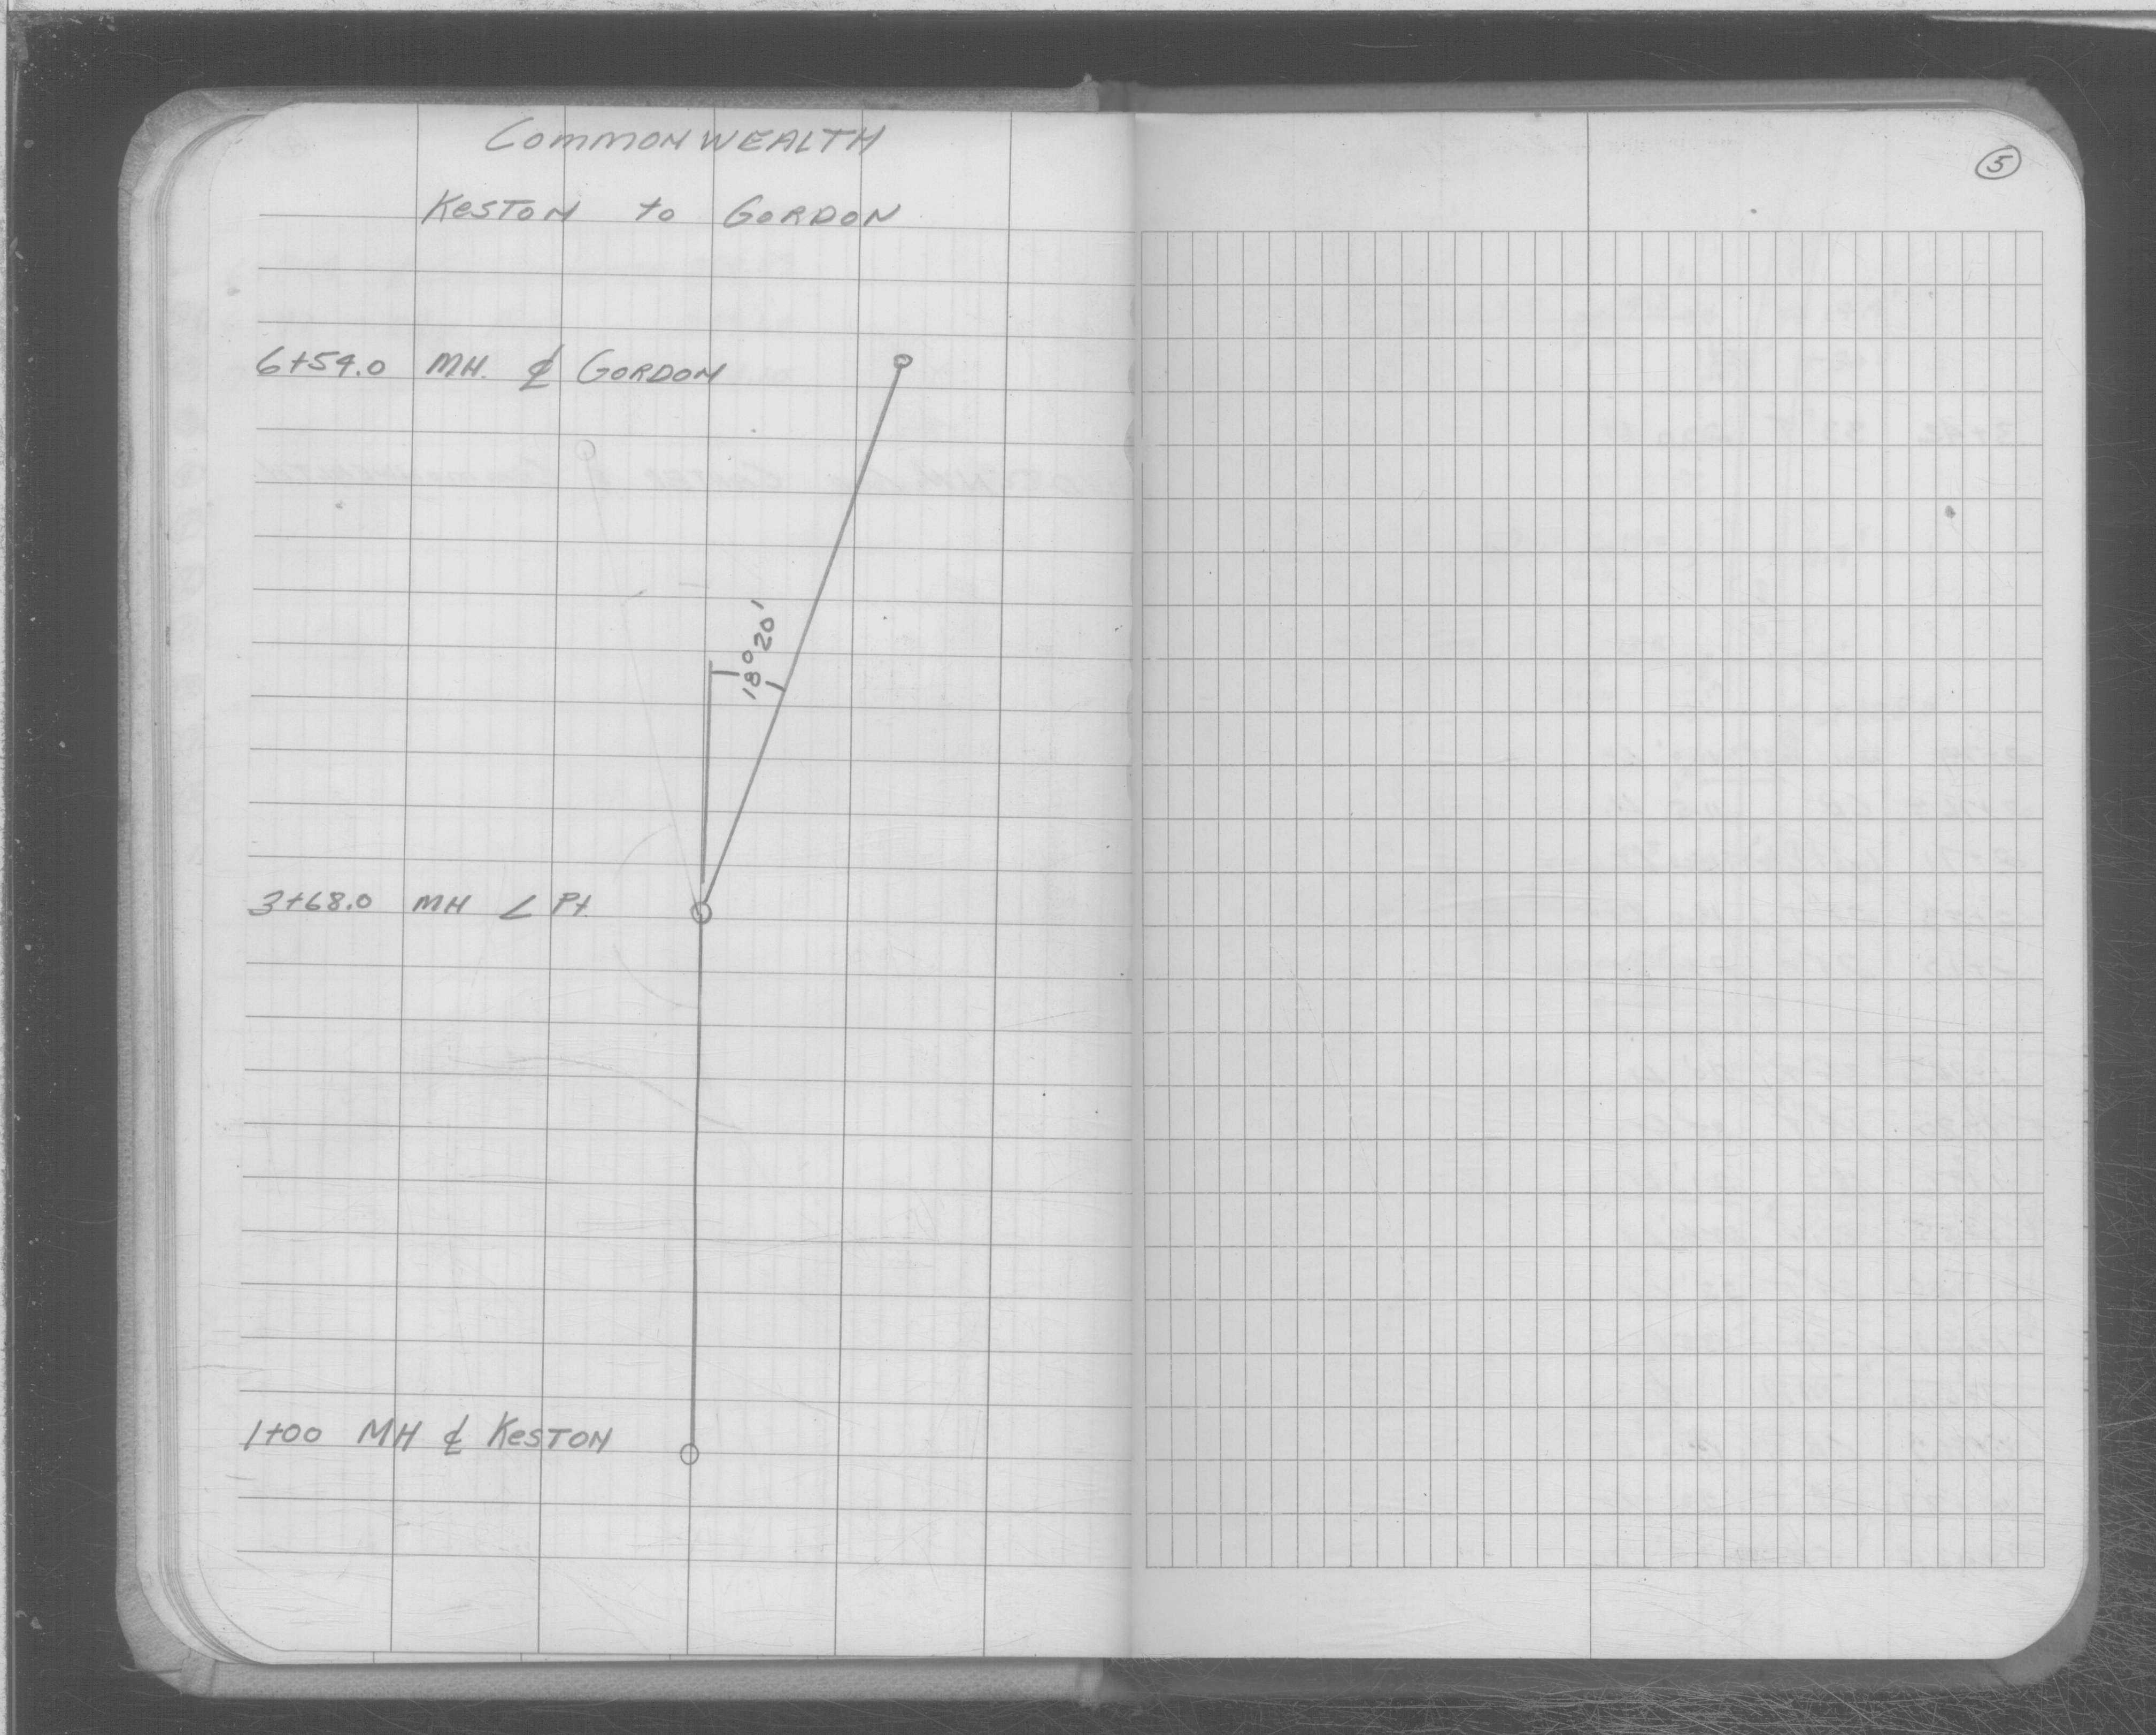 COMMONWEALTH
KESTON to GORDON
5
6+54.0 MH. ℄ GORDON
18°20'
3+68.0 MH ∠ Pt.
1+00 MH ℄ KESTON